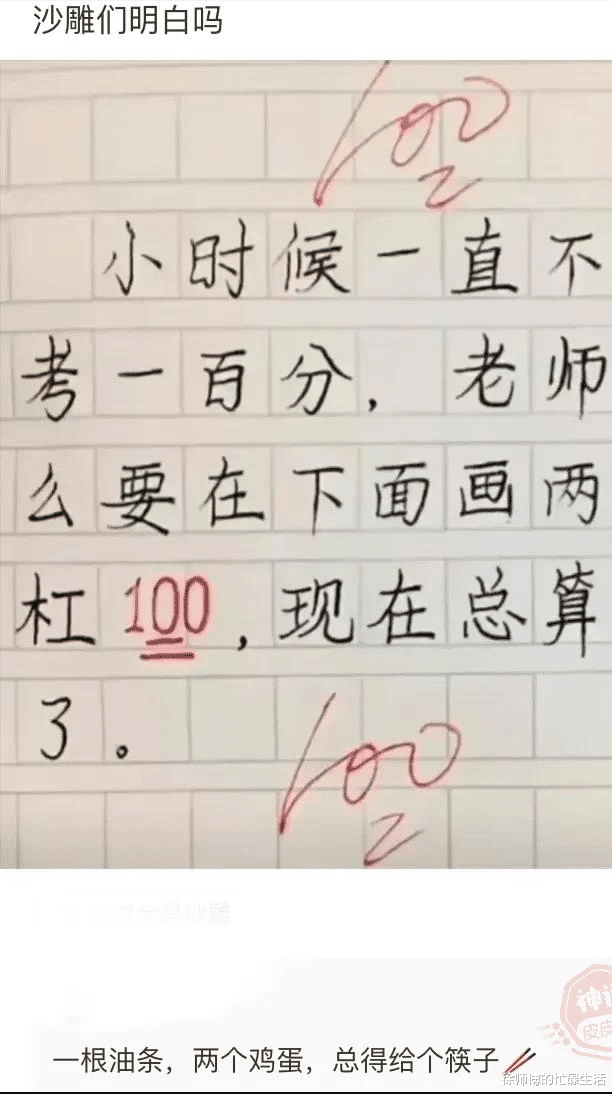 沙雕们明白吗
100
小时候一直不
考一百分，老师
么要在下面画两
杠100，现在总算
了。
100
全是沙雕
皮皮
一根油条，两个鸡蛋，总得给个筷子
徐师傅的忙碌生活